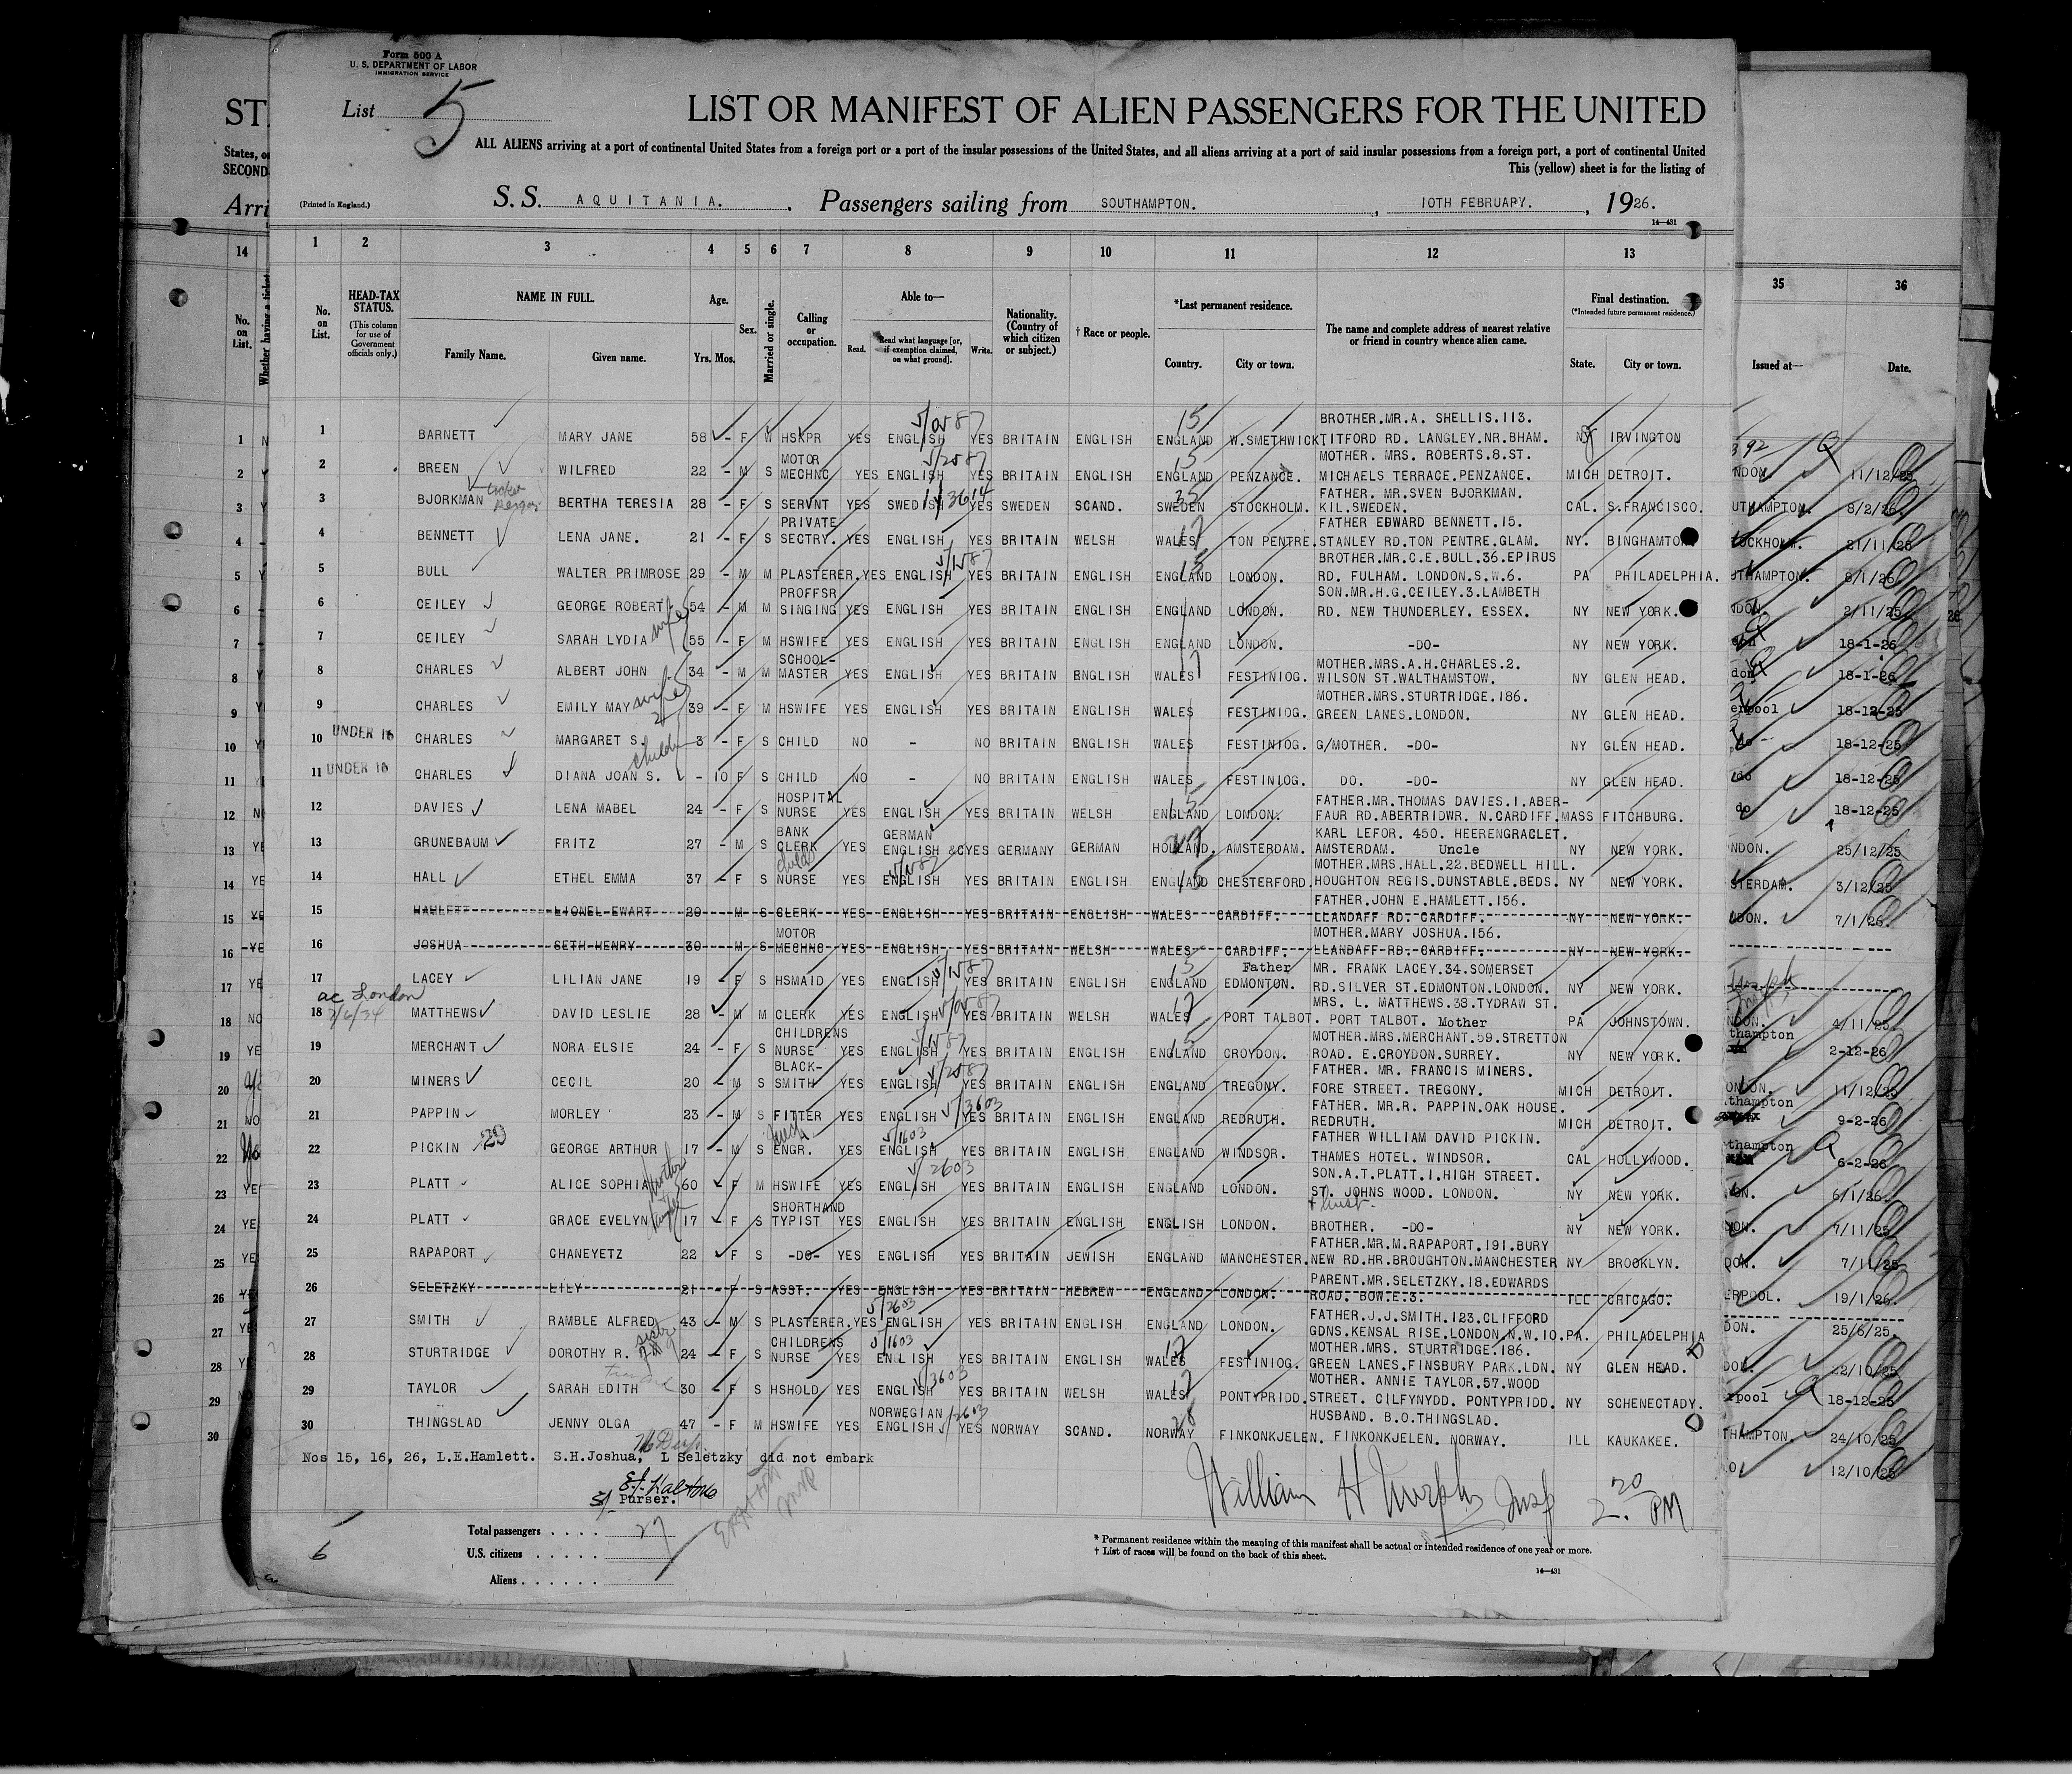 Form 500 A
U. S. DEPARTMENT OF LABOR
IMMIGRATION SERVICE
List 5
LIST OR MANIFEST OF ALIEN PASSENGERS FOR THE UNITED
ST
ALL ALIENS arriving at a port of continental United States from a foreign port or a port of the insular possessions of the United States, and all aliens arriving at a port of said insular possessions from a foreign port, a port of continental United
This (yellow) sheet is for the listing of
States, o
SECOND
Arri
(Printed in England.)
S. S. AQUITANIA. , Passengers sailing from SOUTHAMPTON. , 10TH FEBRUARY. , 1926.
14—431
14 1 2 3 4 5 6 7 8 9 10 11 12 13 35 36
No. on List.
Whether having a ticket
No. on List.
HEAD-TAX STATUS.
(This column for use of Government officials only.)
NAME IN FULL.
Family Name. Given name.
Age.
Yrs. Mos.
Sex.
Married or single.
Calling or occupation.
Able to—
Read. Read what language [or, if exemption claimed, on what ground]. Write.
Nationality. (Country of which citizen or subject.)
† Race or people.
*Last permanent residence.
Country. City or town.
The name and complete address of nearest relative or friend in country whence alien came.
Final destination.
(*Intended future permanent residence.)
State. City or town.
Issued at— Date.
BROTHER.MR.A. SHELLIS.113.
1 BARNETT MARY JANE 58 - F W HSKPR YES ENGLISH YES BRITAIN ENGLISH ENGLAND W.SMETHWICK TITFORD RD. LANGLEY.NR.BHAM. NY IRVINGTON
MOTOR MOTHER. MRS. ROBERTS.8.ST.
2 BREEN WILFRED 22 - M S MECHNC YES ENGLISH YES BRITAIN ENGLISH ENGLAND PENZANCE. MICHAELS TERRACE.PENZANCE. MICH DETROIT. 11/12/25
FATHER. MR.SVEN BJORKMAN.
3 BJORKMAN BERTHA TERESIA 28 - F S SERVNT YES SWEDISH YES SWEDEN SCAND. SWEDEN STOCKHOLM. KIL.SWEDEN. CAL. S.FRANCISCO. UTHAMPTON. 8/2/26.
PRIVATE FATHER EDWARD BENNETT.15.
4 BENNETT LENA JANE. 21 - F S SECTRY. YES ENGLISH YES BRITAIN WELSH WALES TON PENTRE. STANLEY RD.TON PENTRE.GLAM. NY. BINGHAMTON TOCKHOLM. 21/11/25
BROTHER.MR.C.E.BULL.36.EPIRUS
5 BULL WALTER PRIMROSE 29 - M M PLASTERER. YES ENGLISH YES BRITAIN ENGLISH ENGLAND LONDON. RD. FULHAM. LONDON.S.W.6. PA PHILADELPHIA. UTHAMPTON. 8/1/26
PROFFSR SON.MR.H.G.CEILEY.3.LAMBETH
6 CEILEY GEORGE ROBERT 54 - M M SINGING YES ENGLISH YES BRITAIN ENGLISH ENGLAND LONDON. RD. NEW THUNDERLEY. ESSEX. NY NEW YORK. NDON. 2/11/25
7 CEILEY SARAH LYDIA wife 55 - F M HSWIFE YES ENGLISH YES BRITAIN ENGLISH ENGLAND LONDON. -DO- NY NEW YORK. 18-1-26
SCHOOL- MOTHER.MRS.A.H.CHARLES.2.
8 CHARLES ALBERT JOHN 34 - M M MASTER YES ENGLISH YES BRITAIN ENGLISH WALES FESTINIOG. WILSON ST.WALTHAMSTOW. NY GLEN HEAD. 18-1-26
MOTHER.MRS.STURTRIDGE.186.
9 CHARLES EMILY MAY wife 39 - F M HSWIFE YES ENGLISH YES BRITAIN ENGLISH WALES FESTINIOG. GREEN LANES.LONDON. NY GLEN HEAD. erpool 18-12-25
10 UNDER 16 CHARLES MARGARET S. 3 - F S CHILD NO - NO BRITAIN ENGLISH WALES FESTINIOG. G/MOTHER. -DO- NY GLEN HEAD. do 18-12-25
11 UNDER 16 CHARLES DIANA JOAN S. - 10 F S CHILD NO - NO BRITAIN ENGLISH WALES FESTINIOG. DO. -DO- NY GLEN HEAD. do 18-12-25
HOSPITAL FATHER.MR.THOMAS DAVIES.1.ABER-
12 DAVIES LENA MABEL 24 - F S NURSE YES ENGLISH YES BRITAIN WELSH ENGLAND LONDON. FAUR RD.ABERTRIDWR. N.CARDIFF. MASS FITCHBURG. do 18-12-25
BANK GERMAN KARL LEFOR. 450. HEERENGRACLET.
13 GRUNEBAUM FRITZ 27 - M S CLERK YES ENGLISH &C YES GERMANY GERMAN HOLLAND. AMSTERDAM. AMSTERDAM. Uncle NY NEW YORK. NDON. 25/12/25
MOTHER.MRS.HALL.22.BEDWELL HILL.
14 HALL ETHEL EMMA 37 - F S NURSE YES ENGLISH YES BRITAIN ENGLISH ENGLAND CHESTERFORD. HOUGHTON REGIS.DUNSTABLE.BEDS. NY NEW YORK. STERDAM. 3/12/25
FATHER.JOHN E.HAMLETT.156.
15 HAMLETT LIONEL EWART 29 M S CLERK YES ENGLISH YES BRITAIN ENGLISH WALES CARDIFF. LLANDAFF RD. CARDIFF. NY NEW YORK. NDON. 7/1/26.
MOTOR MOTHER.MARY JOSHUA.156.
16 JOSHUA SETH HENRY 30 M S MECHNC YES ENGLISH YES BRITAIN WELSH WALES CARDIFF. LLANDAFF RD. CARDIFF. NY NEW YORK.
Father MR. FRANK LACEY.34.SOMERSET
17 LACEY LILIAN JANE 19 - F S HSMAID YES ENGLISH YES BRITAIN ENGLISH ENGLAND EDMONTON. RD.SILVER ST.EDMONTON.LONDON. NY NEW YORK.
ac London MRS. L. MATTHEWS.38.TYDRAW ST.
18 MATTHEWS DAVID LESLIE 28 - M M CLERK YES ENGLISH YES BRITAIN WELSH WALES PORT TALBOT. PORT TALBOT. Mother PA JOHNSTOWN. NDON. 4/11/25.
CHILDRENS MOTHER.MRS.MERCHANT.59.STRETTON thampton
19 MERCHANT NORA ELSIE 24 - F S NURSE YES ENGLISH YES BRITAIN ENGLISH ENGLAND CROYDON. ROAD. E.CROYDON.SURREY. NY NEW YORK. 2-12-26
BLACK- FATHER. MR. FRANCIS MINERS.
20 MINERS CECIL 20 - M S SMITH YES ENGLISH YES BRITAIN ENGLISH ENGLAND TREGONY. FORE STREET. TREGONY. MICH DETROIT. ONDON. 11/12/25
FATHER. MR.R. PAPPIN.OAK HOUSE. thampton
21 PAPPIN MORLEY 23 - M S FITTER YES ENGLISH YES BRITAIN ENGLISH ENGLAND REDRUTH. REDRUTH. MICH DETROIT. 9-2-26
FATHER WILLIAM DAVID PICKIN. thampton
22 PICKIN GEORGE ARTHUR 17 - M S ENGR. YES ENGLISH YES BRITAIN ENGLISH ENGLAND WINDSOR. THAMES HOTEL. WINDSOR. CAL HOLLYWOOD. 6-2-26
SON.A.T.PLATT.1.HIGH STREET.
23 PLATT ALICE SOPHIA 60 - F M HSWIFE YES ENGLISH YES BRITAIN ENGLISH ENGLAND LONDON. ST. JOHNS WOOD. LONDON. NY NEW YORK. 6/1/26.
SHORTHAND
24 PLATT GRACE EVELYN 17 - F S TYPIST YES ENGLISH YES BRITAIN ENGLISH ENGLISH LONDON. BROTHER. -DO- NY NEW YORK. 7/11/25
FATHER.MR.M.RAPAPORT.191.BURY
25 RAPAPORT CHANEYETZ 22 F S -DO- YES ENGLISH YES BRITAIN JEWISH ENGLAND MANCHESTER. NEW RD.HR.BROUGHTON.MANCHESTER NY BROOKLYN. DON. 7/11/25
PARENT.MR.SELETZKY.18.EDWARDS
26 SELETZKY LILY 21 F S ASST. YES ENGLISH YES BRITAIN HEBREW ENGLAND LONDON. ROAD. BOW.E.3. ILL CHICAGO. ERPOOL. 19/1/26.
FATHER.J.J.SMITH.123.CLIFFORD
27 SMITH RAMBLE ALFRED 43 - M S PLASTERER. YES ENGLISH YES BRITAIN ENGLISH ENGLAND LONDON. GDNS.KENSAL RISE.LONDON.N.W.10. PA. PHILADELPHIA DON. 25/6/25.
CHILDRENS MOTHER.MRS. STURTRIDGE.186.
28 STURTRIDGE DOROTHY R. 24 - F S NURSE YES ENGLISH YES BRITAIN ENGLISH WALES FESTINIOG. GREEN LANES.FINSBURY PARK.LDN. NY GLEN HEAD. DON. 22/10/25
MOTHER. ANNIE TAYLOR.57.WOOD
29 TAYLOR SARAH EDITH 30 - F S HSHOLD YES ENGLISH YES BRITAIN WELSH WALES PONTYPRIDD. STREET. CILFYNYDD. PONTYPRIDD. NY SCHENECTADY. rpool 18-12-25
NORWEGIAN HUSBAND. B.O.THINGSLAD.
30 THINGSLAD JENNY OLGA 47 - F M HSWIFE YES ENGLISH YES NORWAY SCAND. NORWAY FINKONKJELEN. FINKONKJELEN. NORWAY. ILL KAUKAKEE. THAMPTON. 24/10/25
12/10/25
Nos 15, 16, 26, L.E.Hamlett. S.H.Joshua, L Seletzky did not embark
Purser.
William H Murphy Insp 2.20 PM
Total passengers . . . . 27
U.S. citizens . . . . .
Aliens . . . . . .
6
* Permanent residence within the meaning of this manifest shall be actual or intended residence of one year or more.
† List of races will be found on the back of this sheet.
14—431